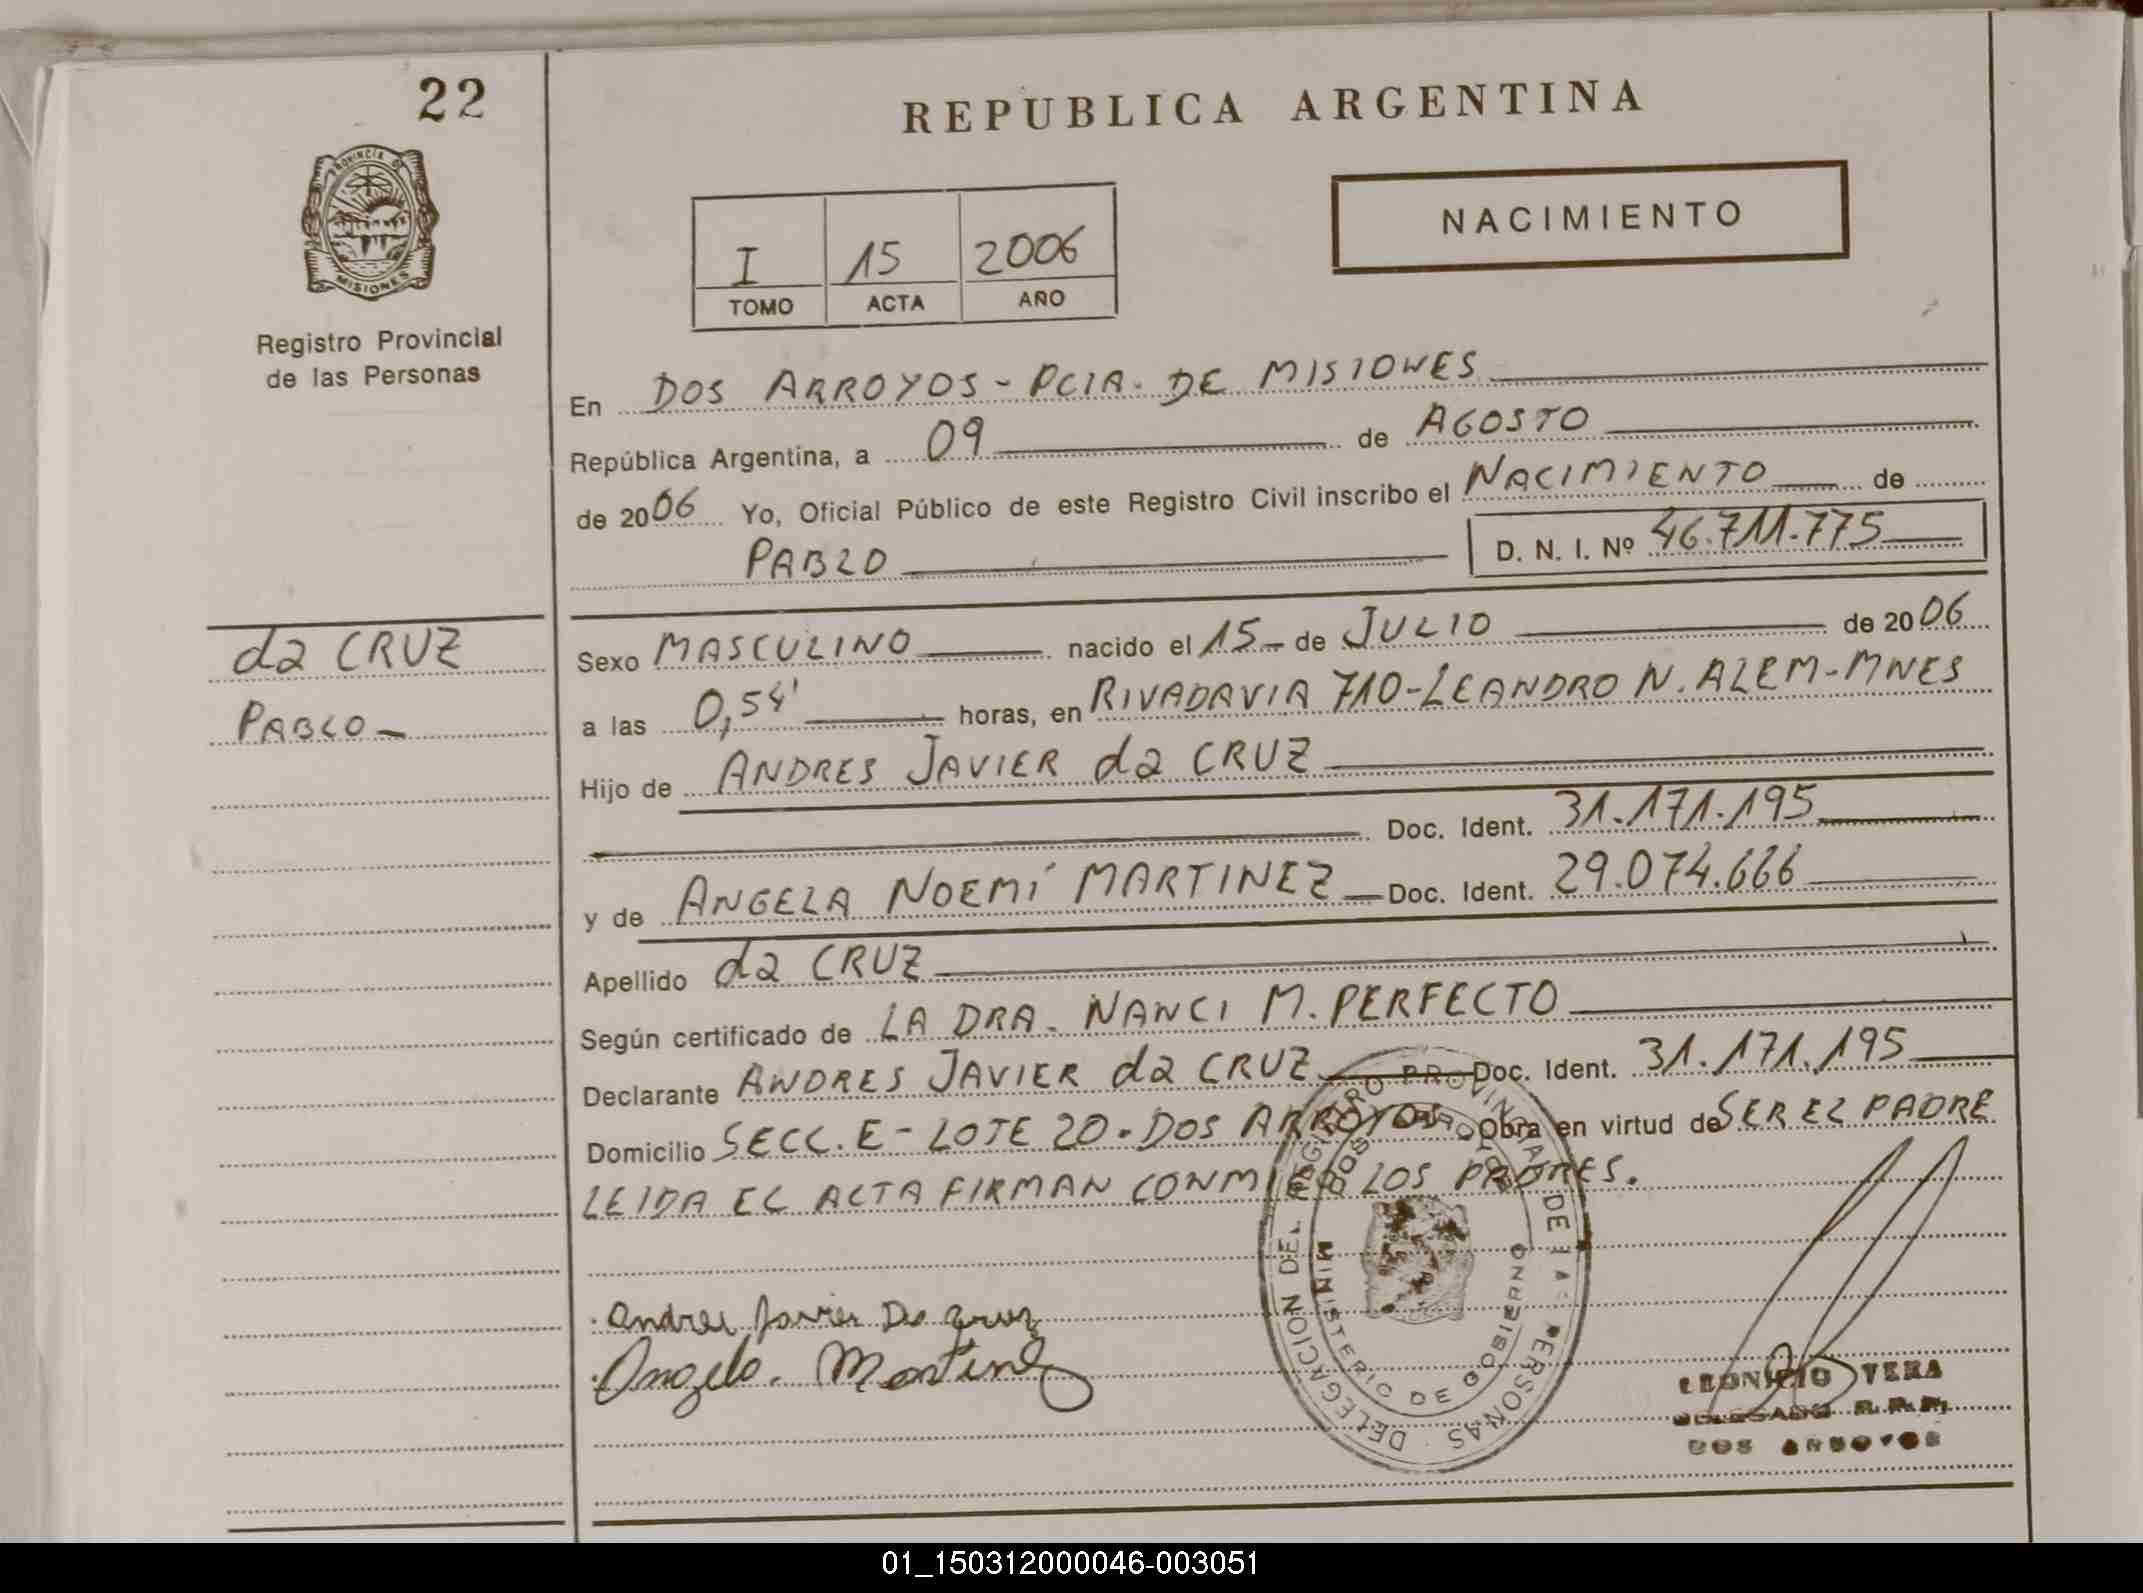 22
REPUBLICA ARGENTINA
PROVINCIA D
MISIONES
NACIMIENTO
I 15 2006
TOMO ACTA AÑO
Registro Provincial
de las Personas
En DOS ARROYOS - PCIA. DE MISIONES
República Argentina, a 09 de AGOSTO
de 2006 Yo, Oficial Público de este Registro Civil inscribo el NACIMIENTO de
PABLO D. N. I. Nº 46.711.775
da CRUZ
PABLO
Sexo MASCULINO nacido el 15 de JULIO de 2006
a las 0,54' horas, en RIVADAVIA 710-LEANDRO N. ALEM-MNES
Hijo de ANDRES JAVIER da CRUZ
Doc. Ident. 31.171.195
y de ANGELA NOEMÍ MARTINEZ Doc. Ident. 29.074.666
Apellido da CRUZ
Según certificado de LA DRA. NANCI M. PERFECTO
Declarante ANDRES JAVIER da CRUZ Doc. Ident. 31.171.195
Domicilio SECC. E - LOTE 20. DOS ARROYOS Obra en virtud de SER EL PADRE
LEIDA EL ACTA FIRMAN CONMIGO LOS PADRES.
DELEGACION DEL REGISTRO PROVINCIAL DE LAS PERSONAS
DOS ARROYOS
MINISTERIO DE GOBIERNO
Andres Javier Da Cruz
Angela Martinez
LEONICIO VERA
DELEGADO R.P.P.
DOS ARROYOS
01_150312000046-003051